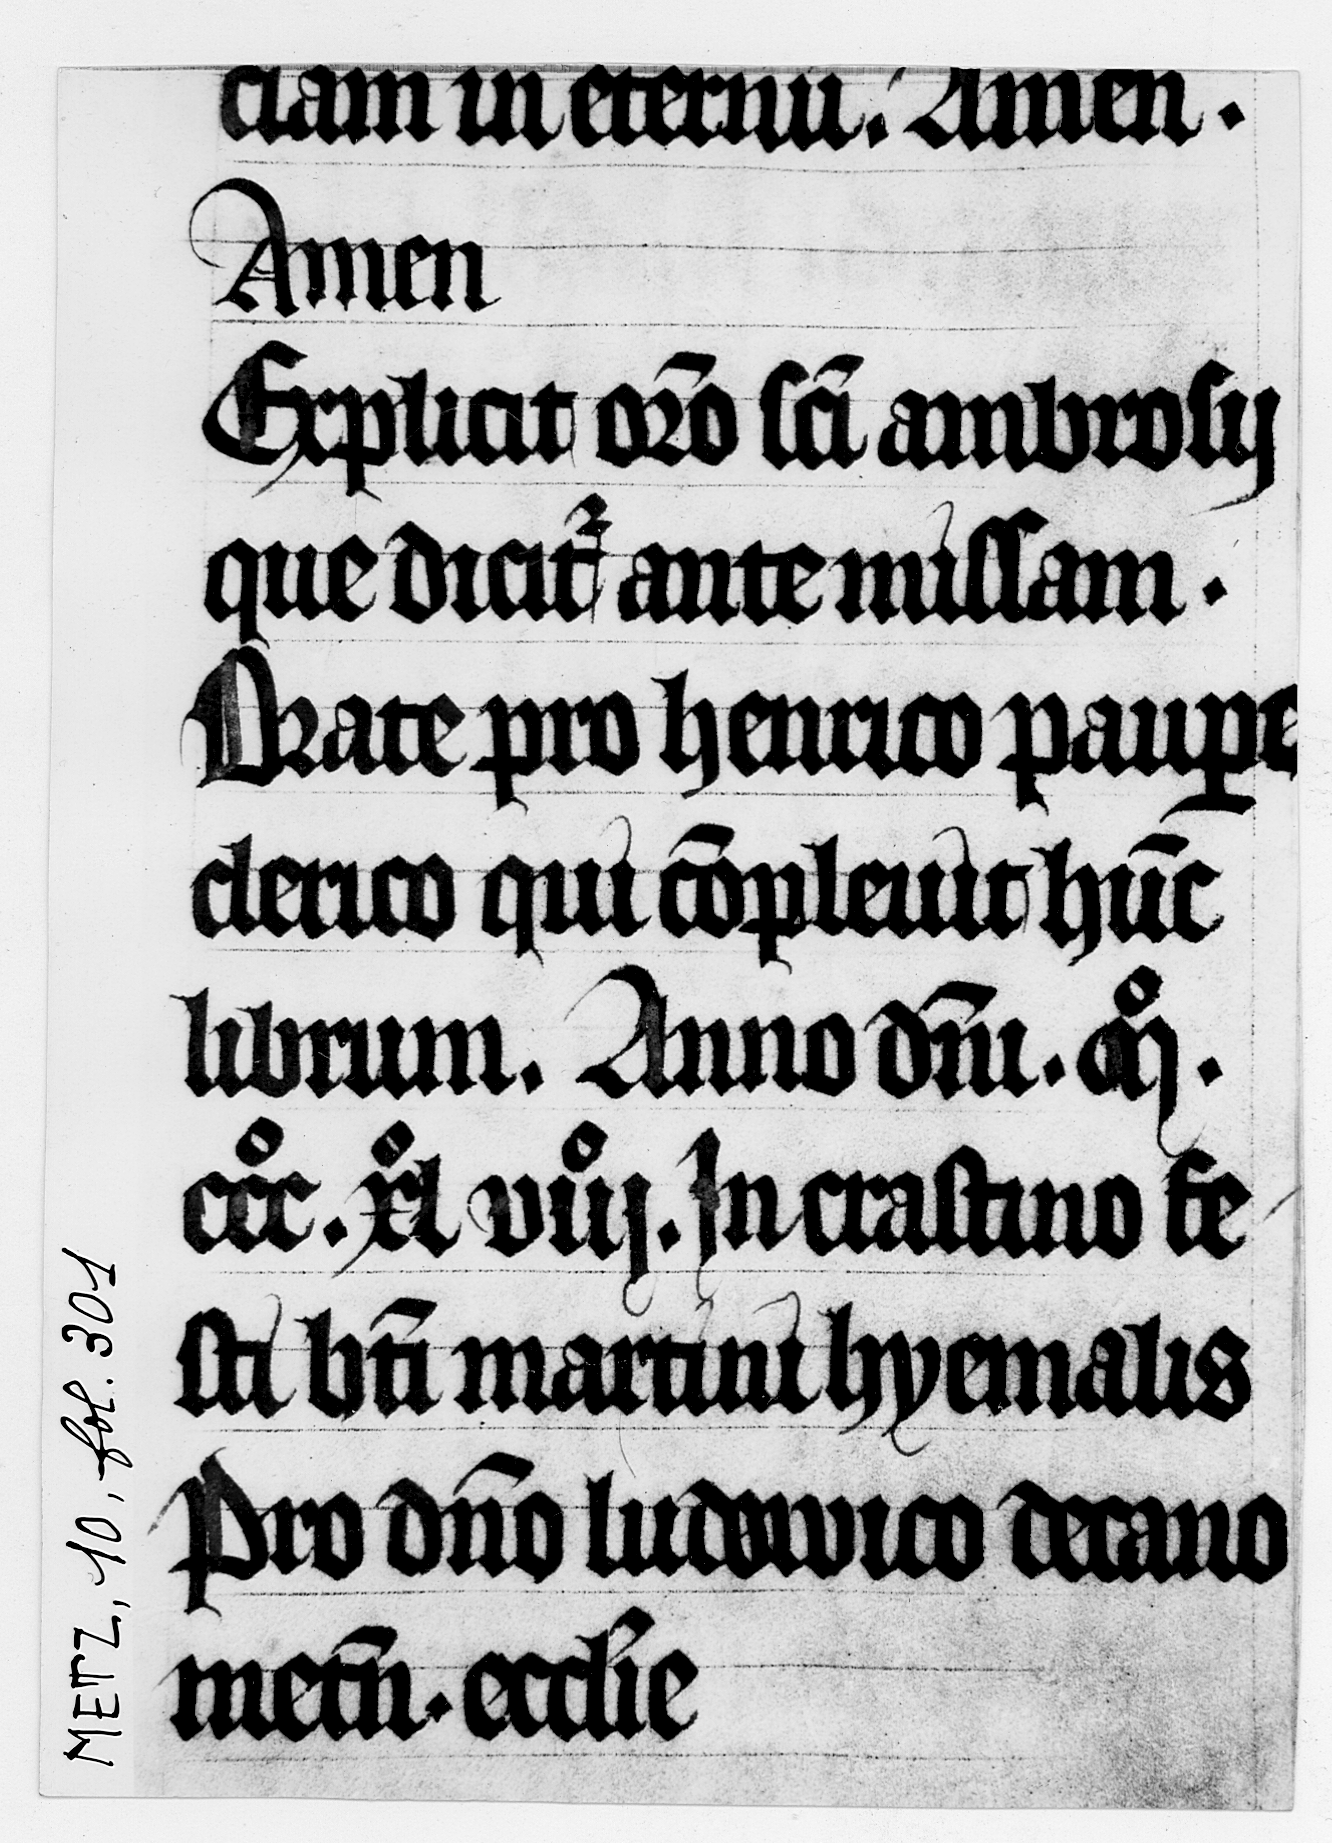 ciam in eternū. Amen.
Amen
Explicit orō sci̅ ambrosij
que dicit᷑ ante missam.
Orate pro henrico paup̲e
clerico qui cōpleuit hūc
librum. Anno dn̅i. mͦ.
cccͦ. xlͦ viijͦ. In crastino fe
sti bt̅i martini hyemalis
Pro dn̅o ludowico decano
metn̅. eccl̅ie
METZ, 10, fol. 301